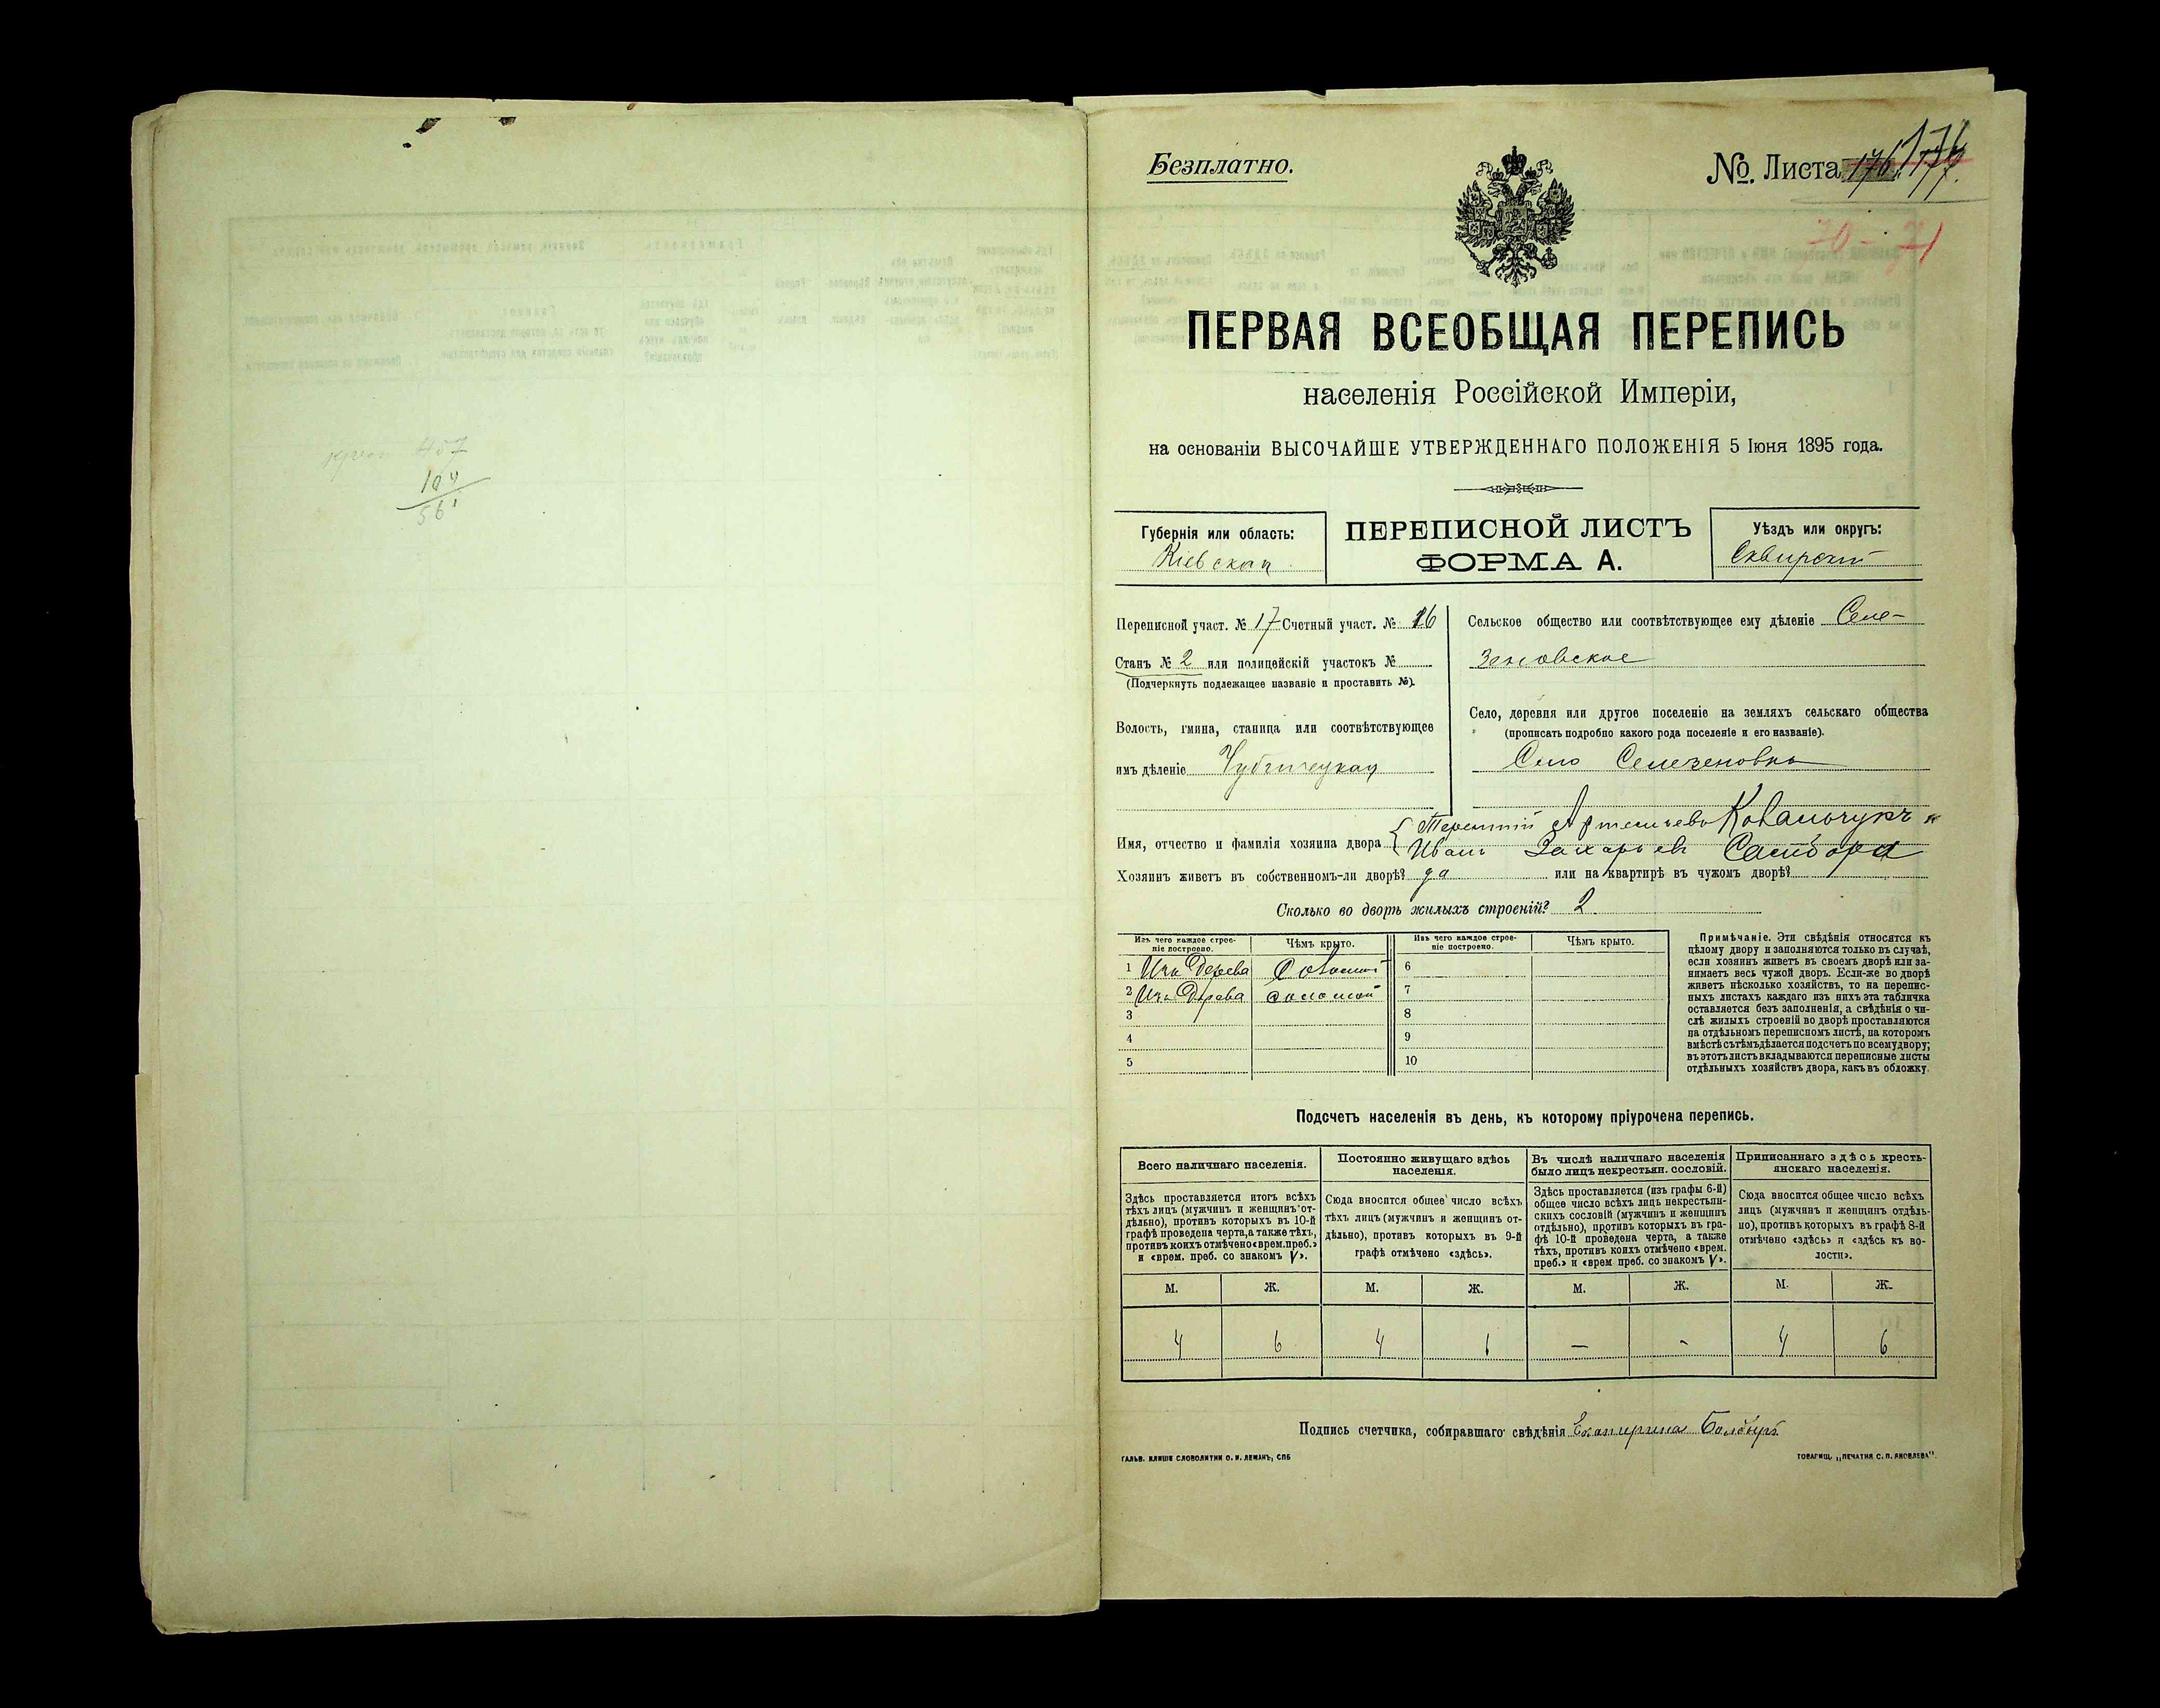 457
104
561
Безплатно.
№. Листа 176 177. 174
70-71
ПЕРВАЯ ВСЕОБЩАЯ ПЕРЕПИСЬ
населенія Россійской Имперіи,
на основаніи ВЫСОЧАЙШЕ УТВЕРЖДЕННАГО ПОЛОЖЕНІЯ 5 Іюня 1895 года.
Губернія или область:
Кіевская
ПЕРЕПИСНОЙ ЛИСТЪ
ФОРМА А.
Уѣздъ или округъ:
Сквирскій
Переписной участ. № 17 Счетный участ. № 16
Станъ № 2 или полицейскій участокъ №
(Подчеркнуть подлежащее названіе и проставить №).
Волость, гмина, станица или соотвѣтствующее
имъ дѣленіе
Сельское общество или соотвѣтствующее ему дѣленіе Селе-
зеновское
Село, деревня или другое поселеніе на земляхъ сельскаго общества
(прописать подробно какого рода поселеніе и его названіе).
Село Селезеновка
Имя, отчество и фамилія хозяина двора { Терентій Ковальчукъ и
Иванъ Захарьевъ
Хозяинъ живетъ въ собственномъ-ли дворѣ? да или на квартирѣ въ чужомъ дворѣ?
Сколько во дворѣ жилыхъ строеній? 2
Изъ чего каждое строе-
ніе построено.
Чѣмъ крыто.
Изъ чего каждое строе-
ніе построено.
Чѣмъ крыто.
1 Изъ дерева Соломой 6
2 Изъ дерева соломой 7
3 8
4 9
5 10
Примѣчаніе. Эти свѣдѣнія относятся къ
цѣлому двору и заполняются только въ случаѣ,
если хозяинъ живетъ въ своемъ дворѣ или за-
нимаетъ весь чужой дворъ. Если-же во дворѣ
живетъ нѣсколько хозяйствъ, то на перепис-
ныхъ листахъ каждаго изъ нихъ эта табличка
оставляется безъ заполненія, а свѣдѣнія о чи-
слѣ жилыхъ строеній во дворѣ проставляются
на отдѣльномъ переписномъ листѣ, на которомъ
вмѣстѣ съ тѣмъ дѣлается подсчетъ по всему двору;
въ этотъ листъ вкладываются переписные листы
отдѣльныхъ хозяйствъ двора, какъ въ обложку.
Подсчетъ населенія въ день, къ которому пріурочена перепись.
Всего наличнаго населенія.
Здѣсь проставляется итогъ всѣхъ
тѣхъ лицъ (мужчинъ и женщинъ от-
дѣльно), противъ которыхъ въ 10-й
графѣ проведена черта, а также тѣхъ,
противъ коихъ отмѣчено «врем. преб.»
и «врем. преб. со знакомъ V».
Постоянно живущаго здѣсь
населенія.
Сюда вносится общее число всѣхъ
тѣхъ лицъ (мужчинъ и женщинъ от-
дѣльно), противъ которыхъ въ 9-й
графѣ отмѣчено «здѣсь».
Въ числѣ наличнаго населенія
было лицъ некрестьян. сословій.
Здѣсь проставляется (изъ графы 6-й)
общее число всѣхъ лицъ некрестьян-
скихъ сословій (мужчинъ и женщинъ
отдѣльно), противъ которыхъ въ гра-
фѣ 10-й проведена черта, а также
тѣхъ, противъ коихъ отмѣчено «врем.
преб.» и «врем преб. со знакомъ V».
Приписаннаго здѣсь кресть-
янскаго населенія.
Сюда вносится общее число всѣхъ
лицъ (мужчинъ и женщинъ отдѣль-
но), противъ которыхъ въ графѣ 8-й
отмѣчено «здѣсь» и «здѣсь къ во-
лости».
М. Ж. М. Ж. М. Ж. М. Ж.
4 6 4 6 — - 4 6
Подпись счетчика, собиравшаго свѣдѣнія Екатерина
ГАЛЬВ. КЛИШЕ СЛОВОЛИТНИ О. И. ЛЕМАНЪ, СПБ
ТОВАРИЩ. „ПЕЧАТНЯ С. П. ЯКОВЛЕВА".